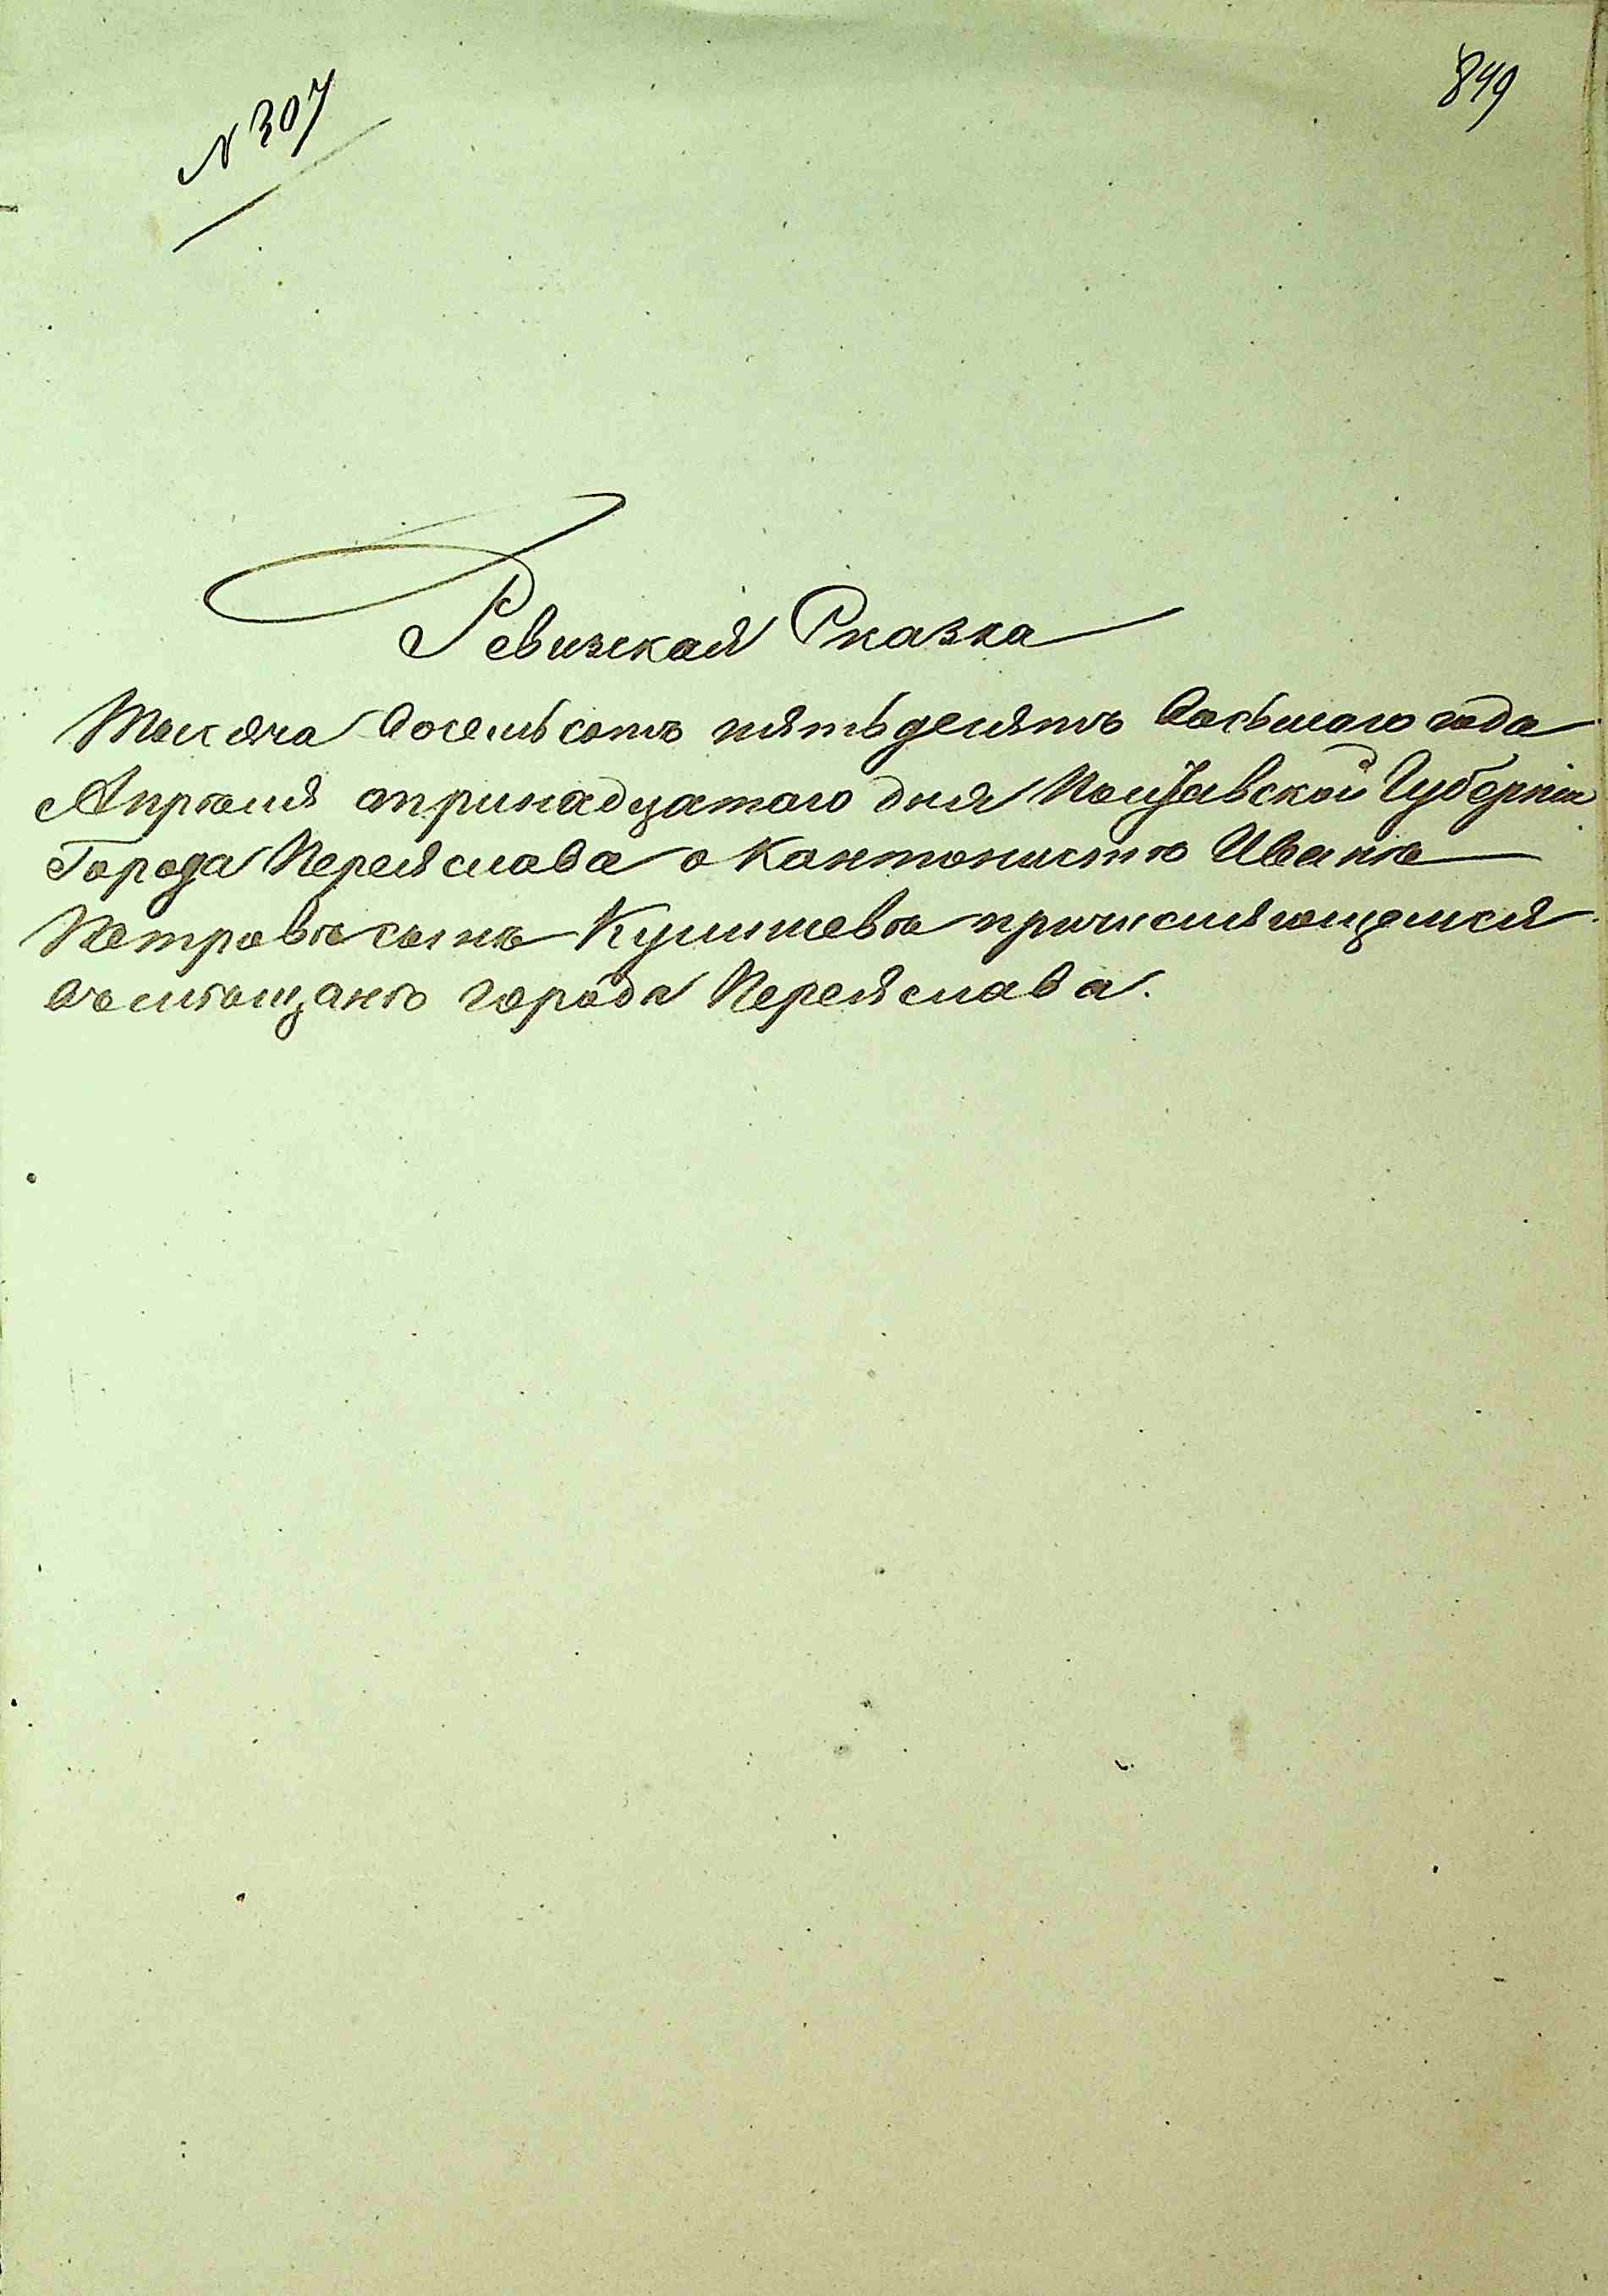 N 307
849
Ревизская Сказка
Тысяча восемьсотъ пятьдесятъ восьмого года
Апрѣля тринадцатого дня Полтавской Губерніи
Города Переяслава о Кантонистѣ Иванѣ
Петровѣ сынѣ Кулишевѣ причисляющемся
въ мѣщанѣ города Переяслава.